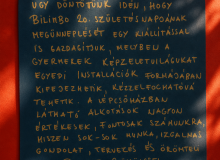 ÚGY DÖNTÖTTÜNK IDÉN, HOGY
BILINBO 20. SZÜLETÉSNAPJÁNAK
MEGÜNNEPLÉSÉT EGY KIÁLLÍTÁSSAL
IS GAZDAGÍTJUK, MELYBEN A
GYERMEKEK KÉPZELETVILÁGUKAT
EGYEDI INSTALLÁCIÓK FORMÁJÁBAN
KIFEJEZHETIK, KÉZZELFOGHATÓVÁ
TEHETIK. A LÉPCSŐHÁZBAN
LÁTHATÓ ALKOTÁSOK NAGYON
ÉRTÉKESEK, FONTOSAK SZÁMUNKRA,
HISZEN SOK-SOK MUNKA, IZGALMAS
GONDOLAT, TERVEZÉS ÉS ÖRÖMTELI